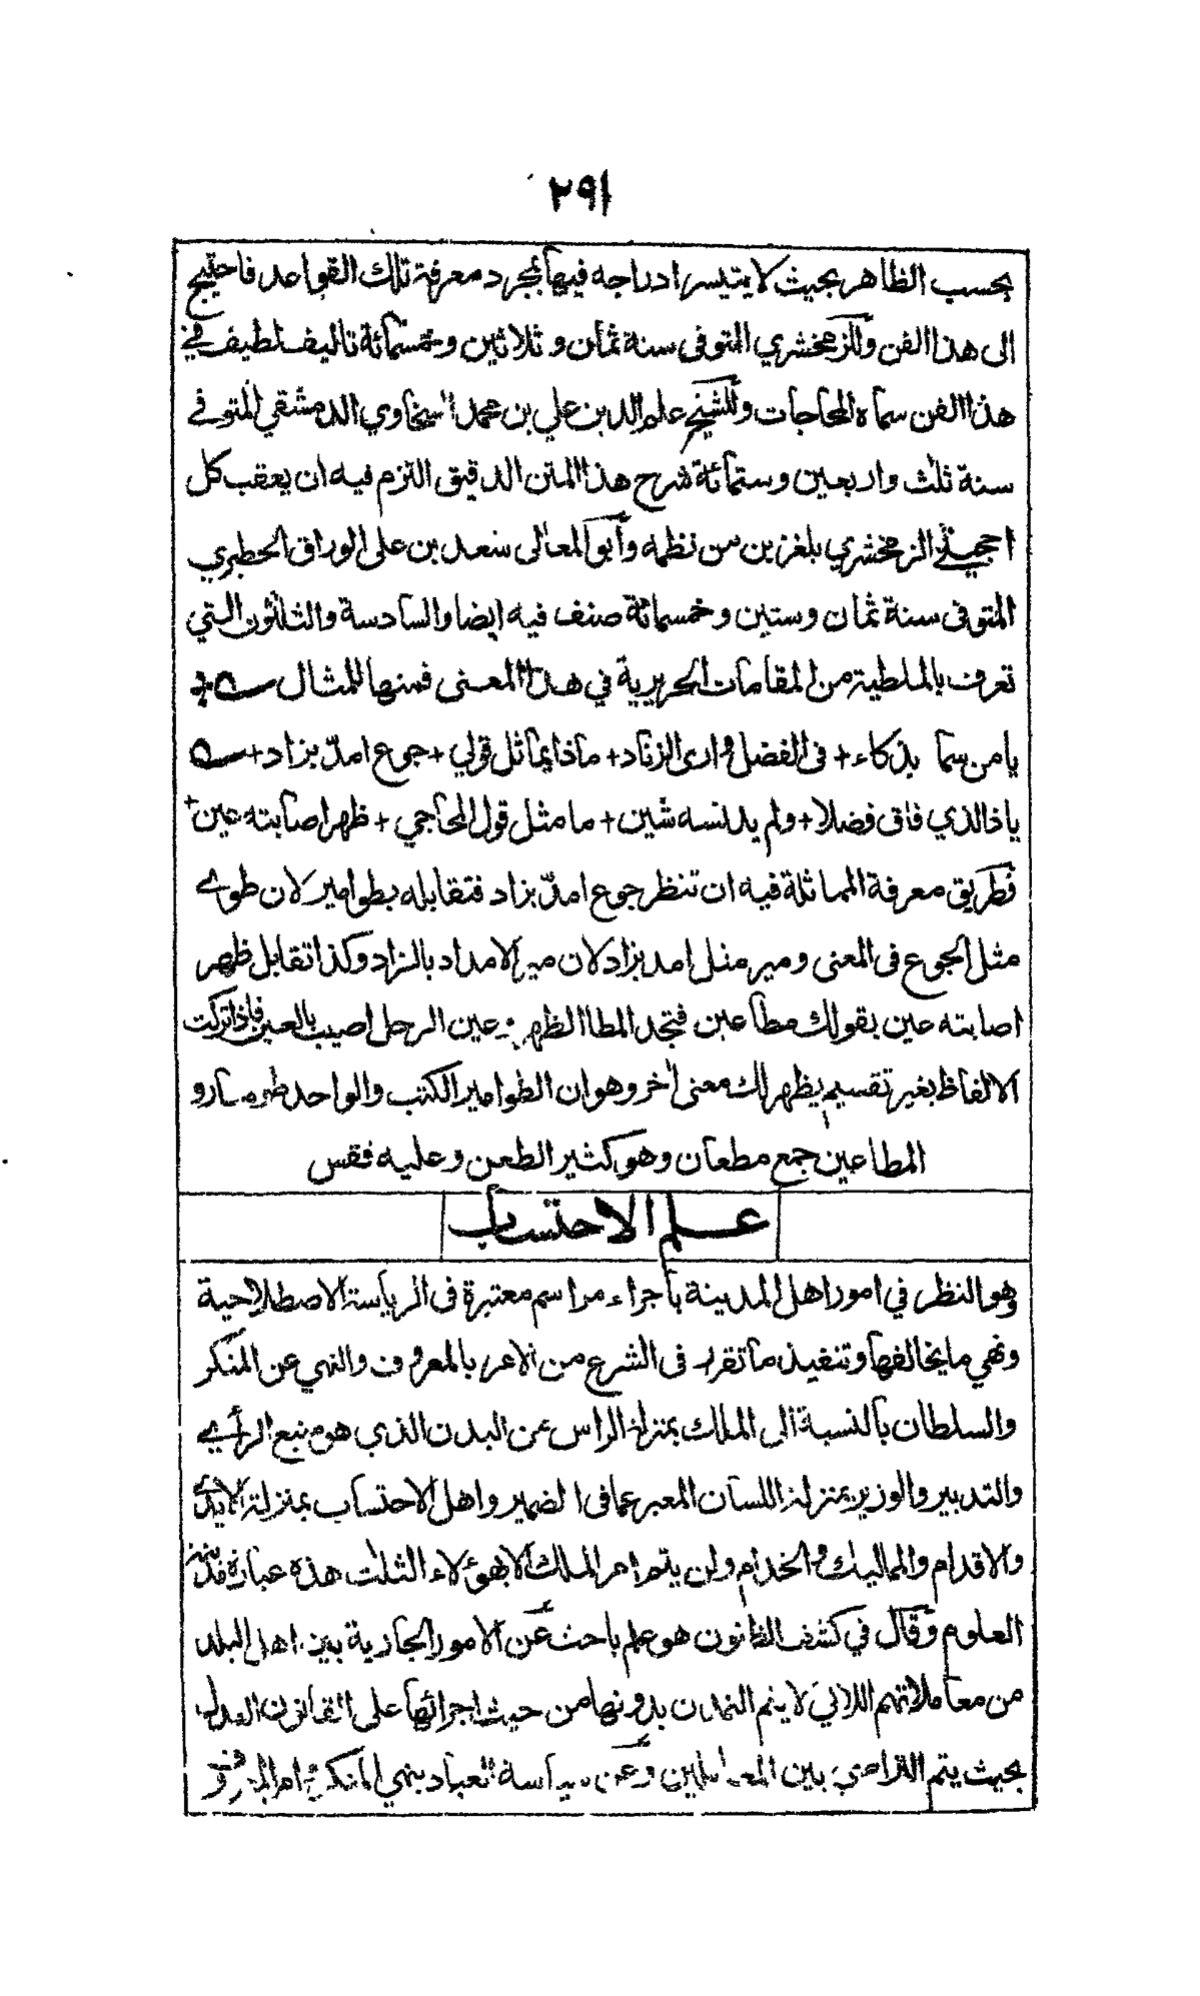 ٢٩١
بحسب الظاهر بحيث لا يتيسر ادراجه فيها بمجرد معرفة تلك القواعد فاحتيج
الى هذا الفن وللزمخشري المتوفى سنة ثمان وثلاثين وخمسمائة تاليف لطيف في
هذا الفن سماه المحاجات وللشيخ علم الدين علي بن محمد السخاوي الدمشقي المتوفى
سنة ثلث واربعين وستمائة شرح هذا المتن الدقيق التزم فيه ان يعقب كل
احجيتي الزمخشري بلغزين من نظمه وأبو المعالى سعد بن على الوراق الحطيري
المتوفى سنة ثمان وستين وخمسمائة صنف فيه ايضا والسادسة والثلثون التي
تعرف بالملطية من المقامات الحريرية في هذا المعنى فمنها للمثال
يا من سما بذكاء + فى الفضل وارى الزناد + ماذا يماثل قولي + جوع امدّ بزاد +
ياذا الذي فاق فضلا + ولم يدنسه شين + ما مثل قول المحاجي + ظهر اصابته عين +
فطريق معرفة المماثلة فيه ان تنظر جوع امدّ بزاد فتقابله بطوامير لان طوى
مثل الجوع فى المعنى ومير مثل امد بزاد لان مير الامداد بالزاد وكذا تقابل ظهر
اصابته عين بقولك مطاعين فتجد المطا الظهر وعين الرجل اصيب بالعين فاذا تركت
الالفاظ بغير تقسيم يظهر لك معنى اخر وهو ان الطوامير الكتب والواحد طومار و
المطاعين جمع مطعان وهو كثير الطعن وعليه فقس
علم الاحتساب
وهو النظر في امور اهل المدينة باجراء مراسم معتبرة فى الرياسة الاصطلاحية
ونهي ما يخالفها وتنفيذ ما تقرر فى الشرع من الامر بالمعروف والنهي عن المنكر
والسلطان بالنسبة الى الملك بمنزلة الراس من البدن الذي هو منبع الرأي
والتدبير والوزير بمنزلة اللسان المعبر عما فى الضمير واهل الاحتساب بمنزلة الايدي
والاقدام والمماليك والخدام ولن يتم امر الملك الا بهؤلاء الثلث هذه عبارة مدينة
العلوم وقال في كشف الظنون هو علم باحث عن الامور الجارية بين اهل البلد
من معاملاتهم اللاتي لا يتم التمدن بدونها من حيث اجرائها على القانون العدل
بحيث يتم التراضي بين المعاملين وعن سياسة العباد بنهي المنكر وامر المعروف